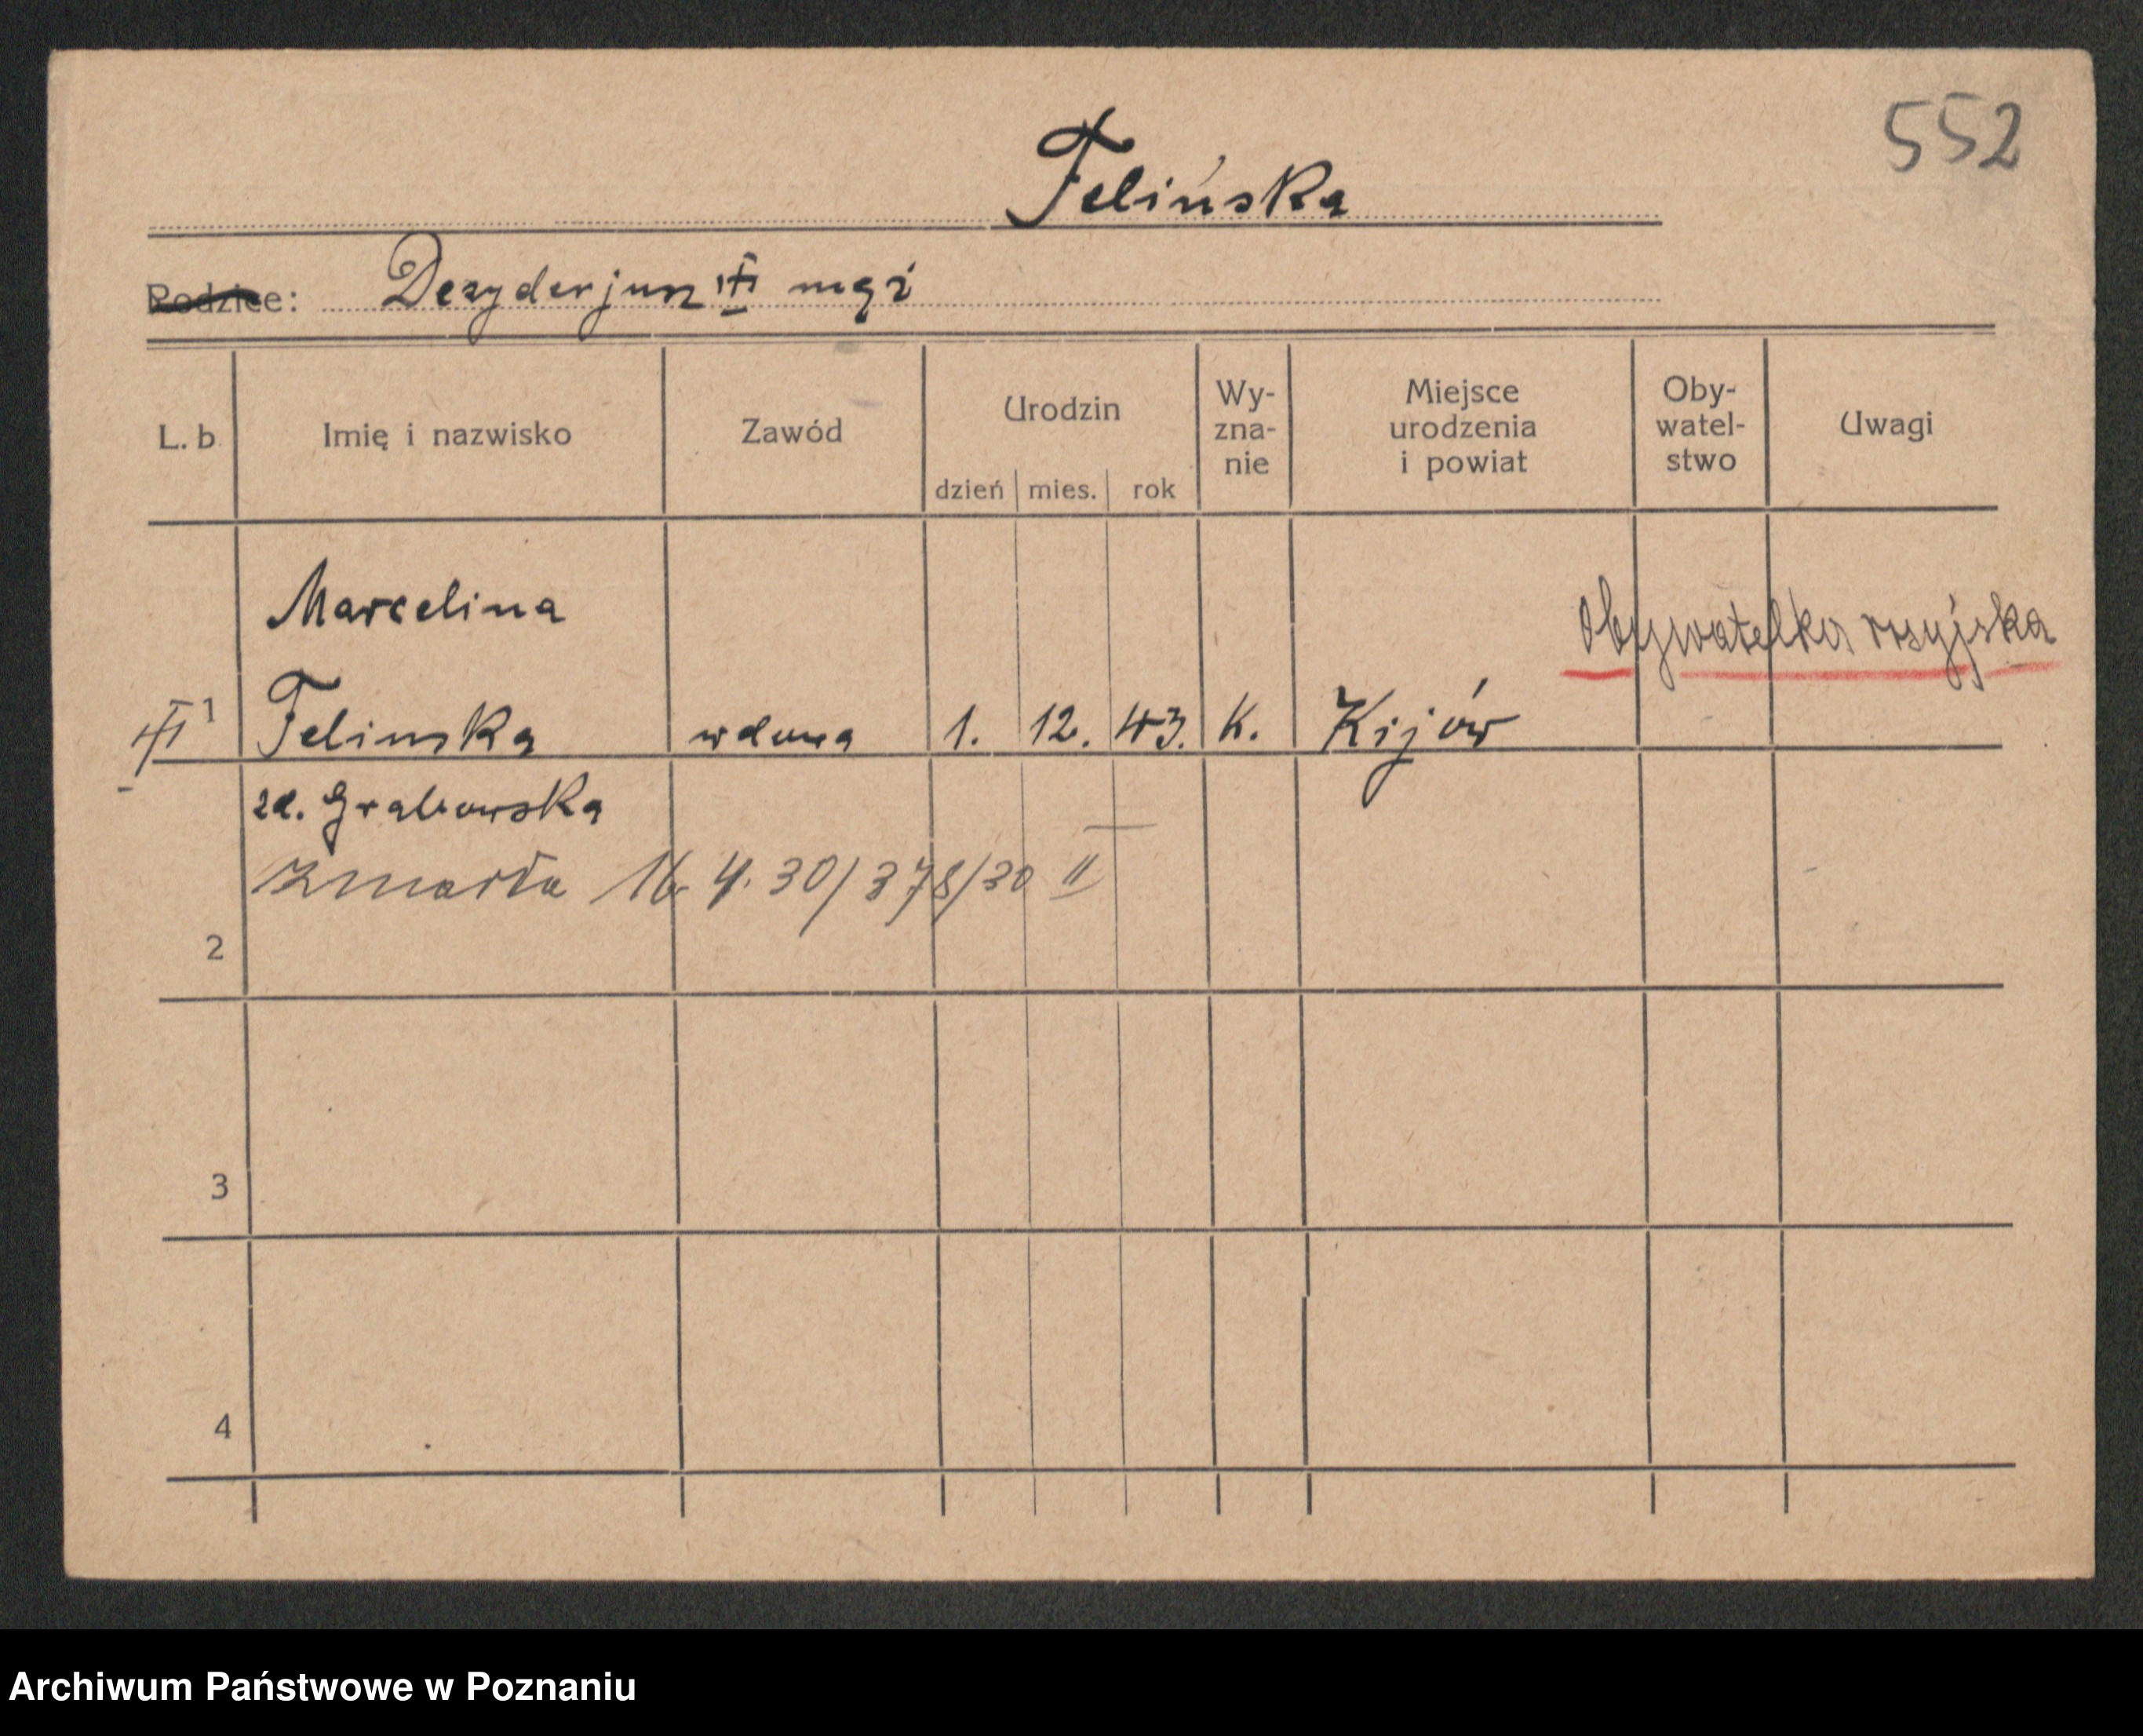 552
Felińska
Rodzice: Dezyderjusz mąż
L. b. Imię i nazwisko Zawód Urodzin Wy-zna-nie Miejsce urodzenia i powiat Oby-watel-stwo Uwagi
dzień mies. rok
Marcelina
Obywatelka rosyjska
1 Felinska wdowa 1. 12. 43. K. Kijów
zd. Grabowska
Zmarła 16. 4. 30/378/30 II
2
3
4
Archiwum Państwowe w Poznaniu